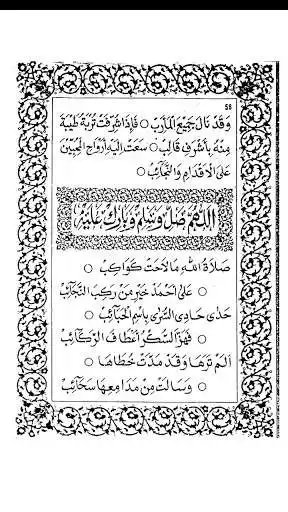 58
وَقَدْ نَالَ جَمِيْعَ الْمَآرِبْ ○ فَإِذَا شَرُفَتْ تُرْبَةُ طَيْبَةَ
مِنْهُ بِأَشْرَفِ قَالِبْ ○ سَعَتْ إِلَيْهِ أَرْوَاحُ الْمُحِبِّيْنَ
عَلَى الْأَقْدَامِ وَالنَّجَائِبْ ○
اَللّٰهُمَّ صَلِّ وَسَلِّمْ وَبَارِكْ عَلَيْهِ
صَلَاةُ اللهِ مَا لَاحَتْ كَوَاكِبْ ○
○ عَلَى أَحْمَدْ خَيْرِ مَنْ رَكِبَ النَّجَائِبْ
حَدَى حَادِى السُّرَى بِاسْمِ الْحَبَائِبْ ○
○ فَهَزَّ السُّكْرُ أَعْطَافَ الرَّكَائِبْ
أَلَمْ تَرَهَا وَقَدْ مَدَّتْ خُطَاهَا ○
○ وَسَالَتْ مِنْ مَدَامِعِهَا سَحَائِبْ